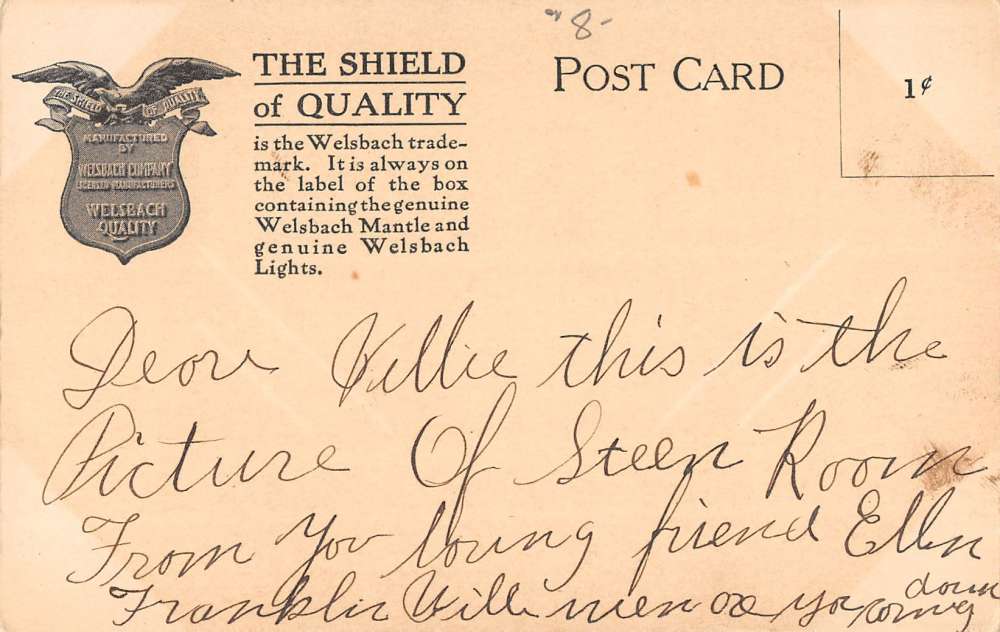 "8-
THE SHIELD
of QUALITY
is the Welsbach trade-
mark. It is always on
the label of the box
containing the genuine
Welsbach Mantle and
genuine Welsbach
Lights.
THE SHIELD OF QUALITY
MANUFACTURED
BY
WELSBACH COMPANY
LICENSED MANUFACTURERS
WELSBACH
QUALITY
POST CARD
1¢
Dear Willie this is the
Picture Of Steen Room
From You loving friend Ellen
Franklin Wille wen you coming
down